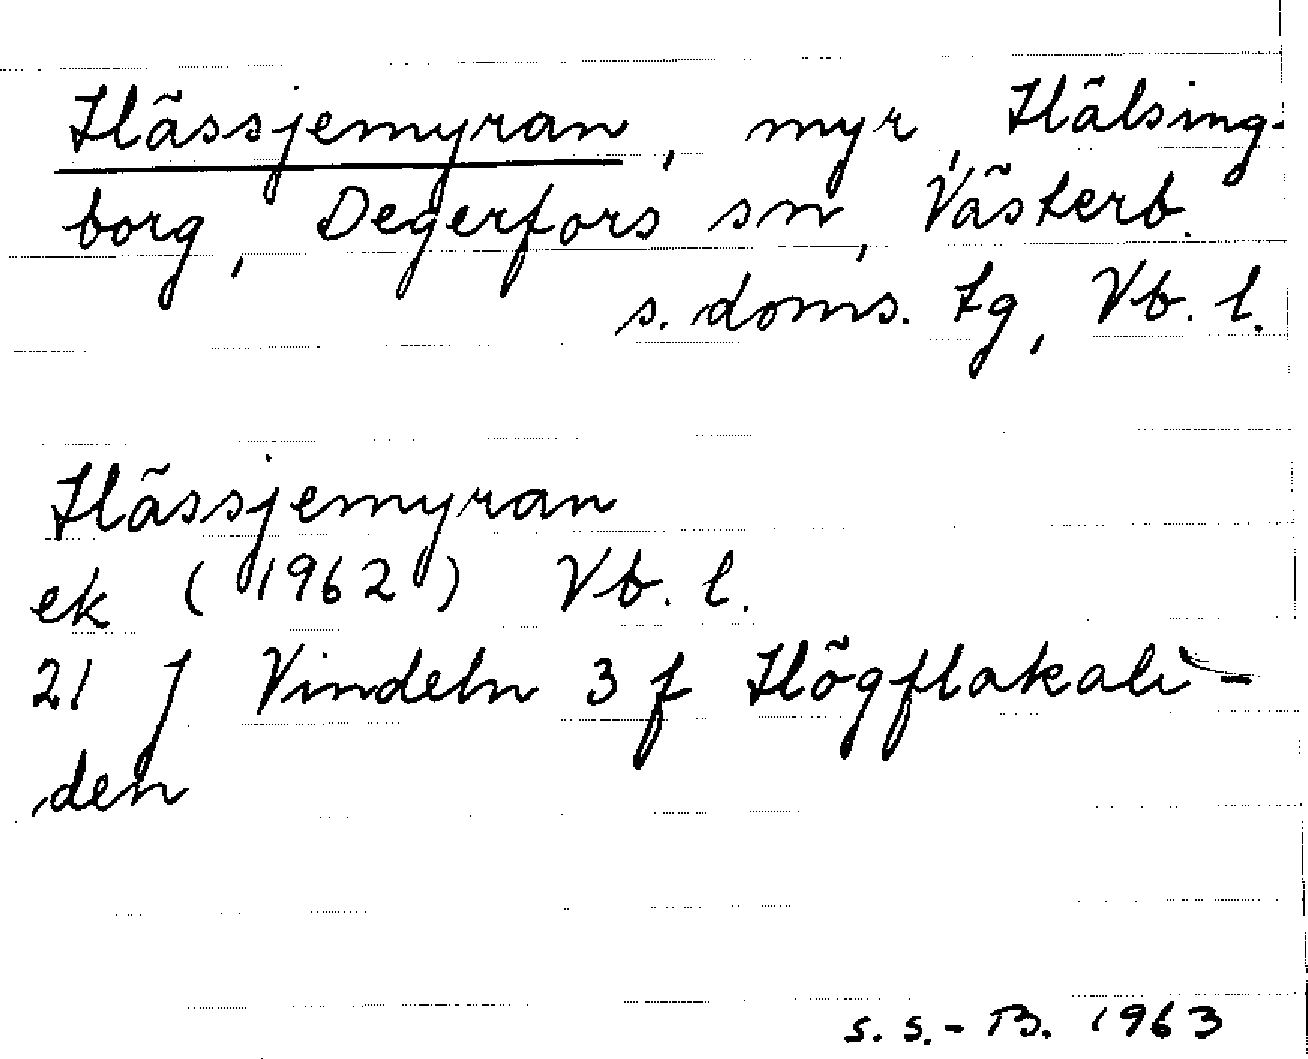 Hässjemyran, myr, Hälsing-
borg, Degerfors sn, Västerb.
s. doms. tg, Vb. l.
Hässjemyran
ek (1962) Vb. l.
21 J Vindeln 3 f Högflakali-
den
S. S.-B. 1963